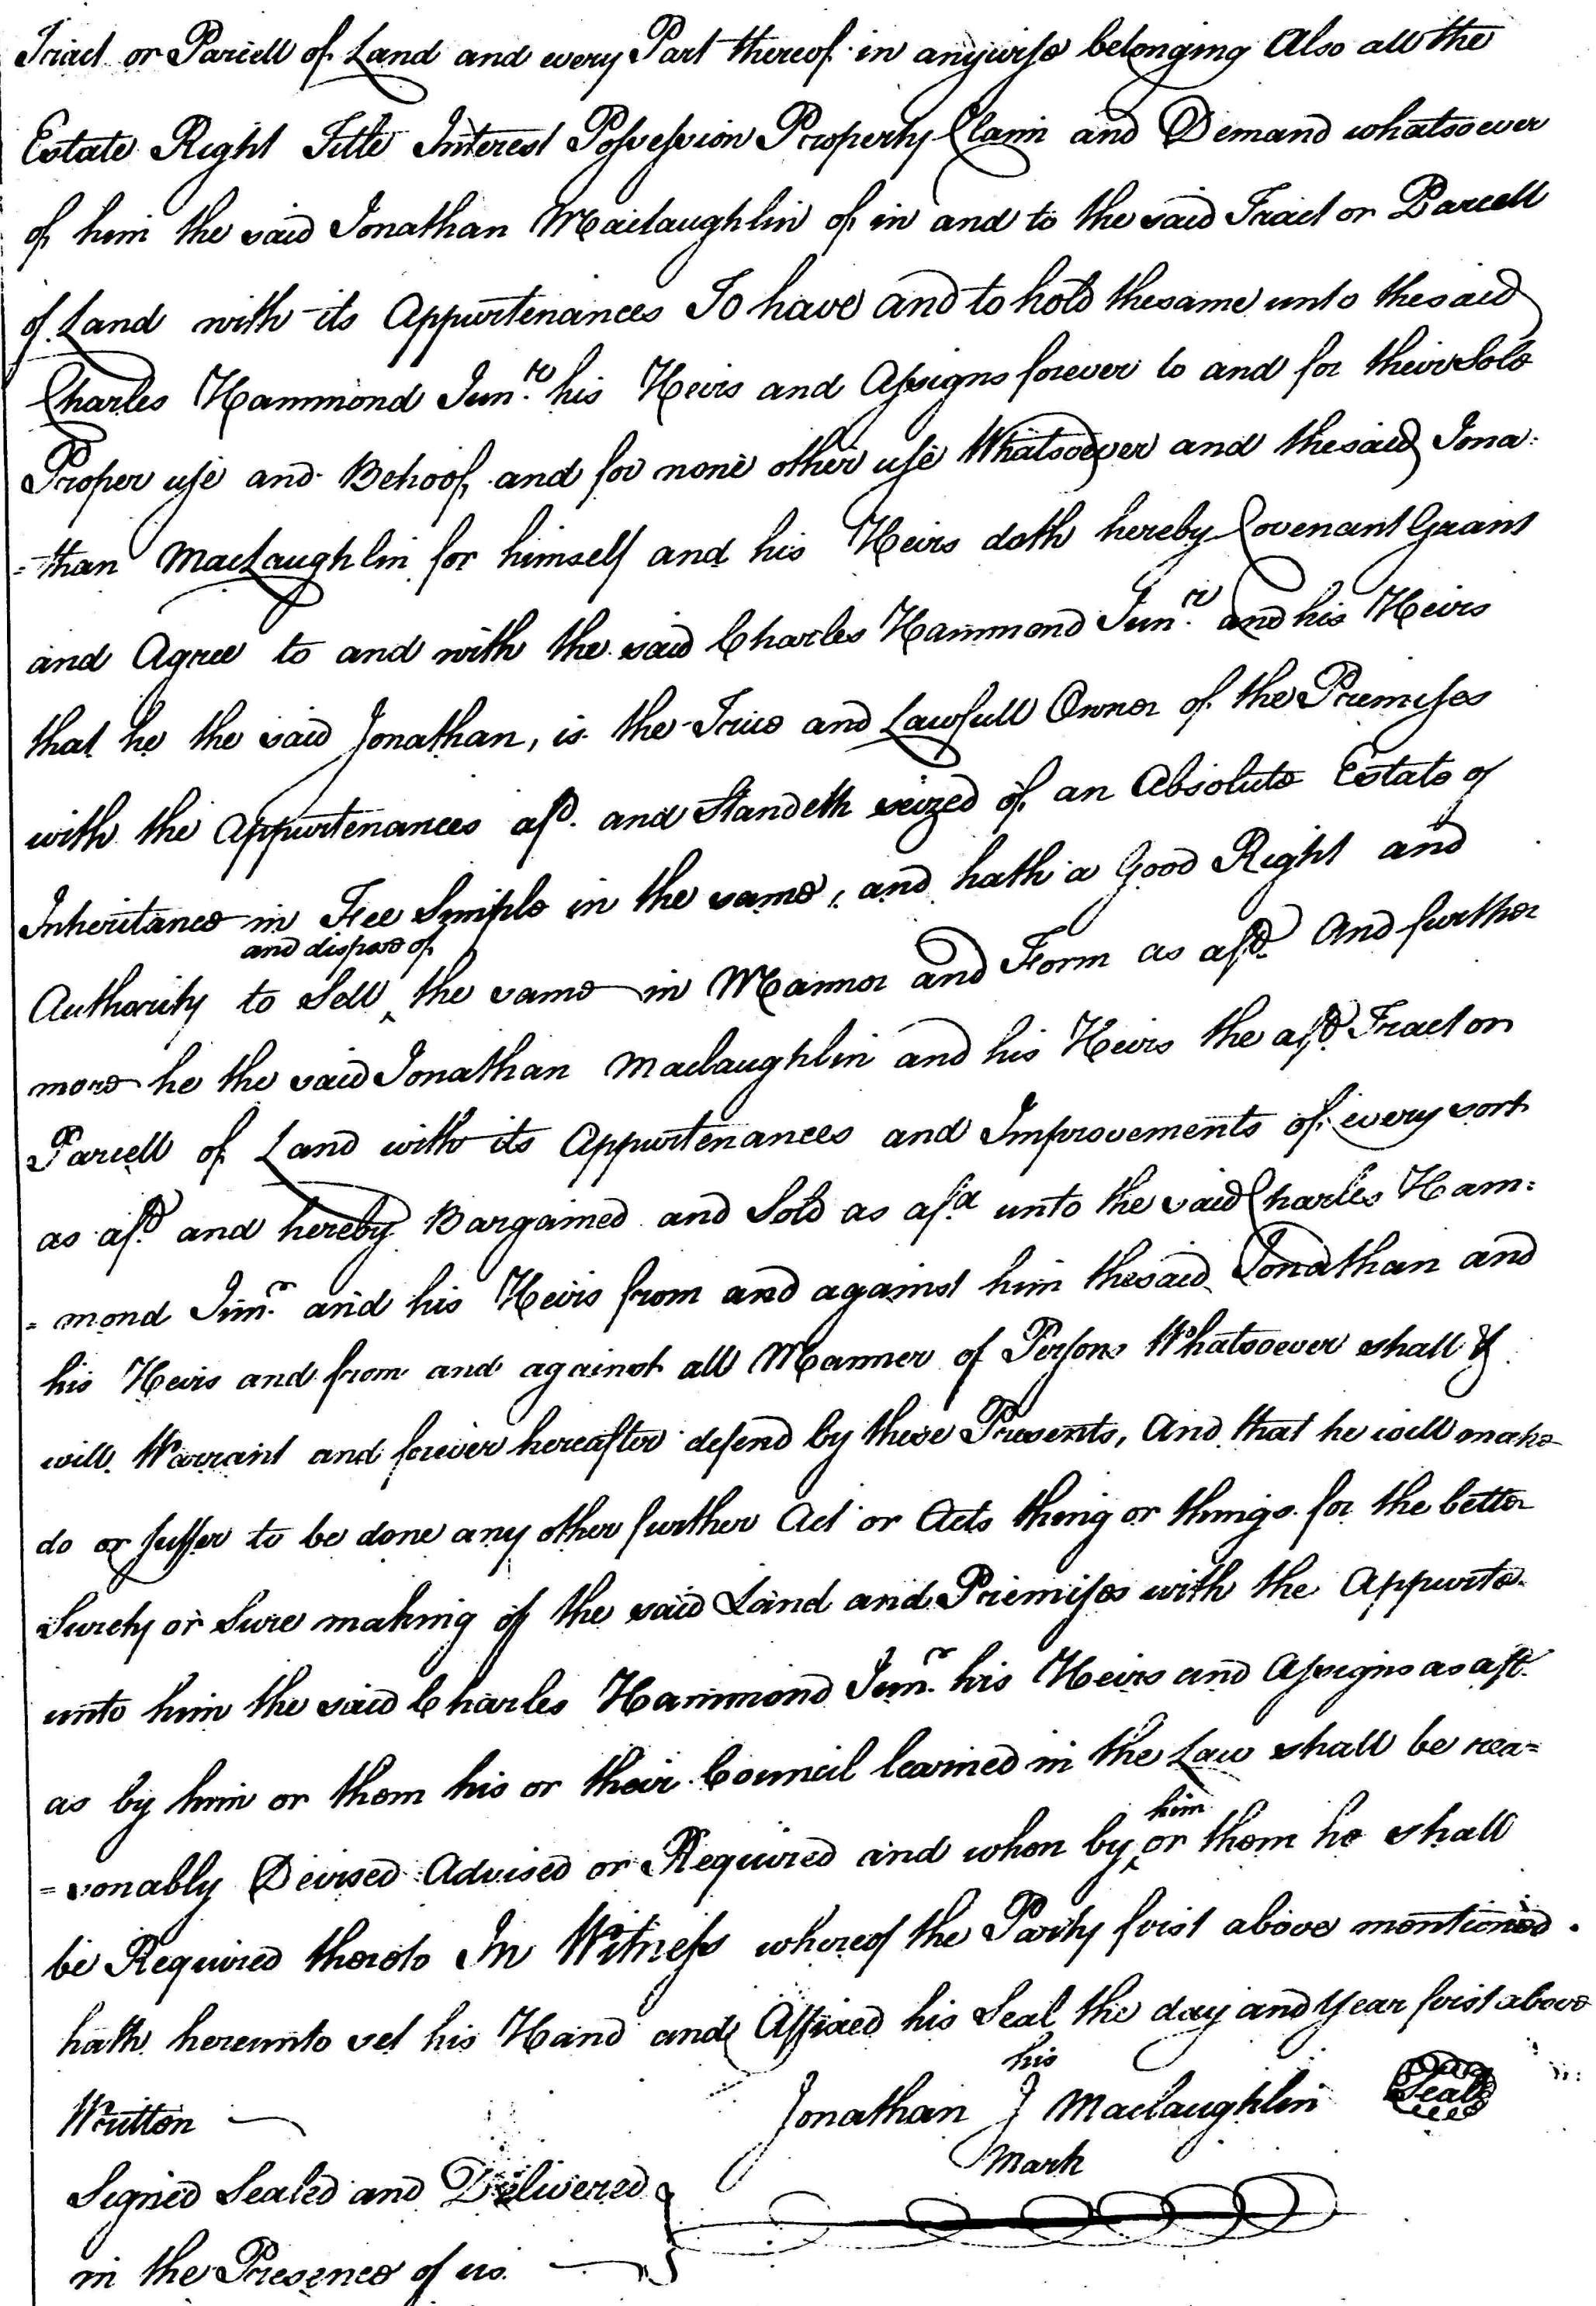 Tract or Parcell of Land and every Part thereof in anywise belonging Also all the
Estate Right Title Interest Possession Property Claim and Demand whatsoever
of him the said Jonathan Maclaughlin of in and to the said Tract or Parcell
of Land with its Appurtenances To have and to hold the same unto the said
Charles Hammond Junr. his Heirs and Assigns forever to and for their Sole
Proper use and Behoof and for none other use Whatsoever and the said Jona=
=than MacLaughlin for himself and his Heirs doth hereby Covenant Grant
and Agree to and with the said Charles Hammond Junr. and his Heirs
that he the said Jonathan, is the True and Lawfull Owner of the Premises
with the Appurtenances afsd. and Standeth seized of an Absolute Estate of
Inheritance in Fee Simple in the same, and hath a Good Right and
and dispose of
Authority to Sell ‸ the same in Mannor and Form as afsd. And further
more he the said Jonathan Maclaughlin and his Heirs the afsd. Tract or
Parcell of Land with its Appurtenances and Improvements of every sort
as afsd. and hereby Bargained and Sold as afsd. unto the said Charles Ham=
=mond Junr. and his Heirs from and against him the said Jonathan and
his Heirs and from and against all Manner of Persons Whatsoever shall &
will Warrant and forever hereafter defend by these Presents, And that he will make
do or suffer to be done any other further Act or Acts thing or things for the better
Surety or Sure making of the said Land and Premises with the Appurts.
unto him the said Charles Hammond Junr. his Heirs and Assigns as afsd.
as by him or them his or their Council learned in the Law shall be rea=
him
=sonably Devised Advised or Required and when by ‸ or them he shall
be Required thereto In Witness whereof the Party first above mentioned
hath hereunto set his Hand and Affixed his Seal the day and Year first above
his
Written Jonathan J Maclaughlin Seal
Mark
Signed Sealed and Delivered
in the Presence of us